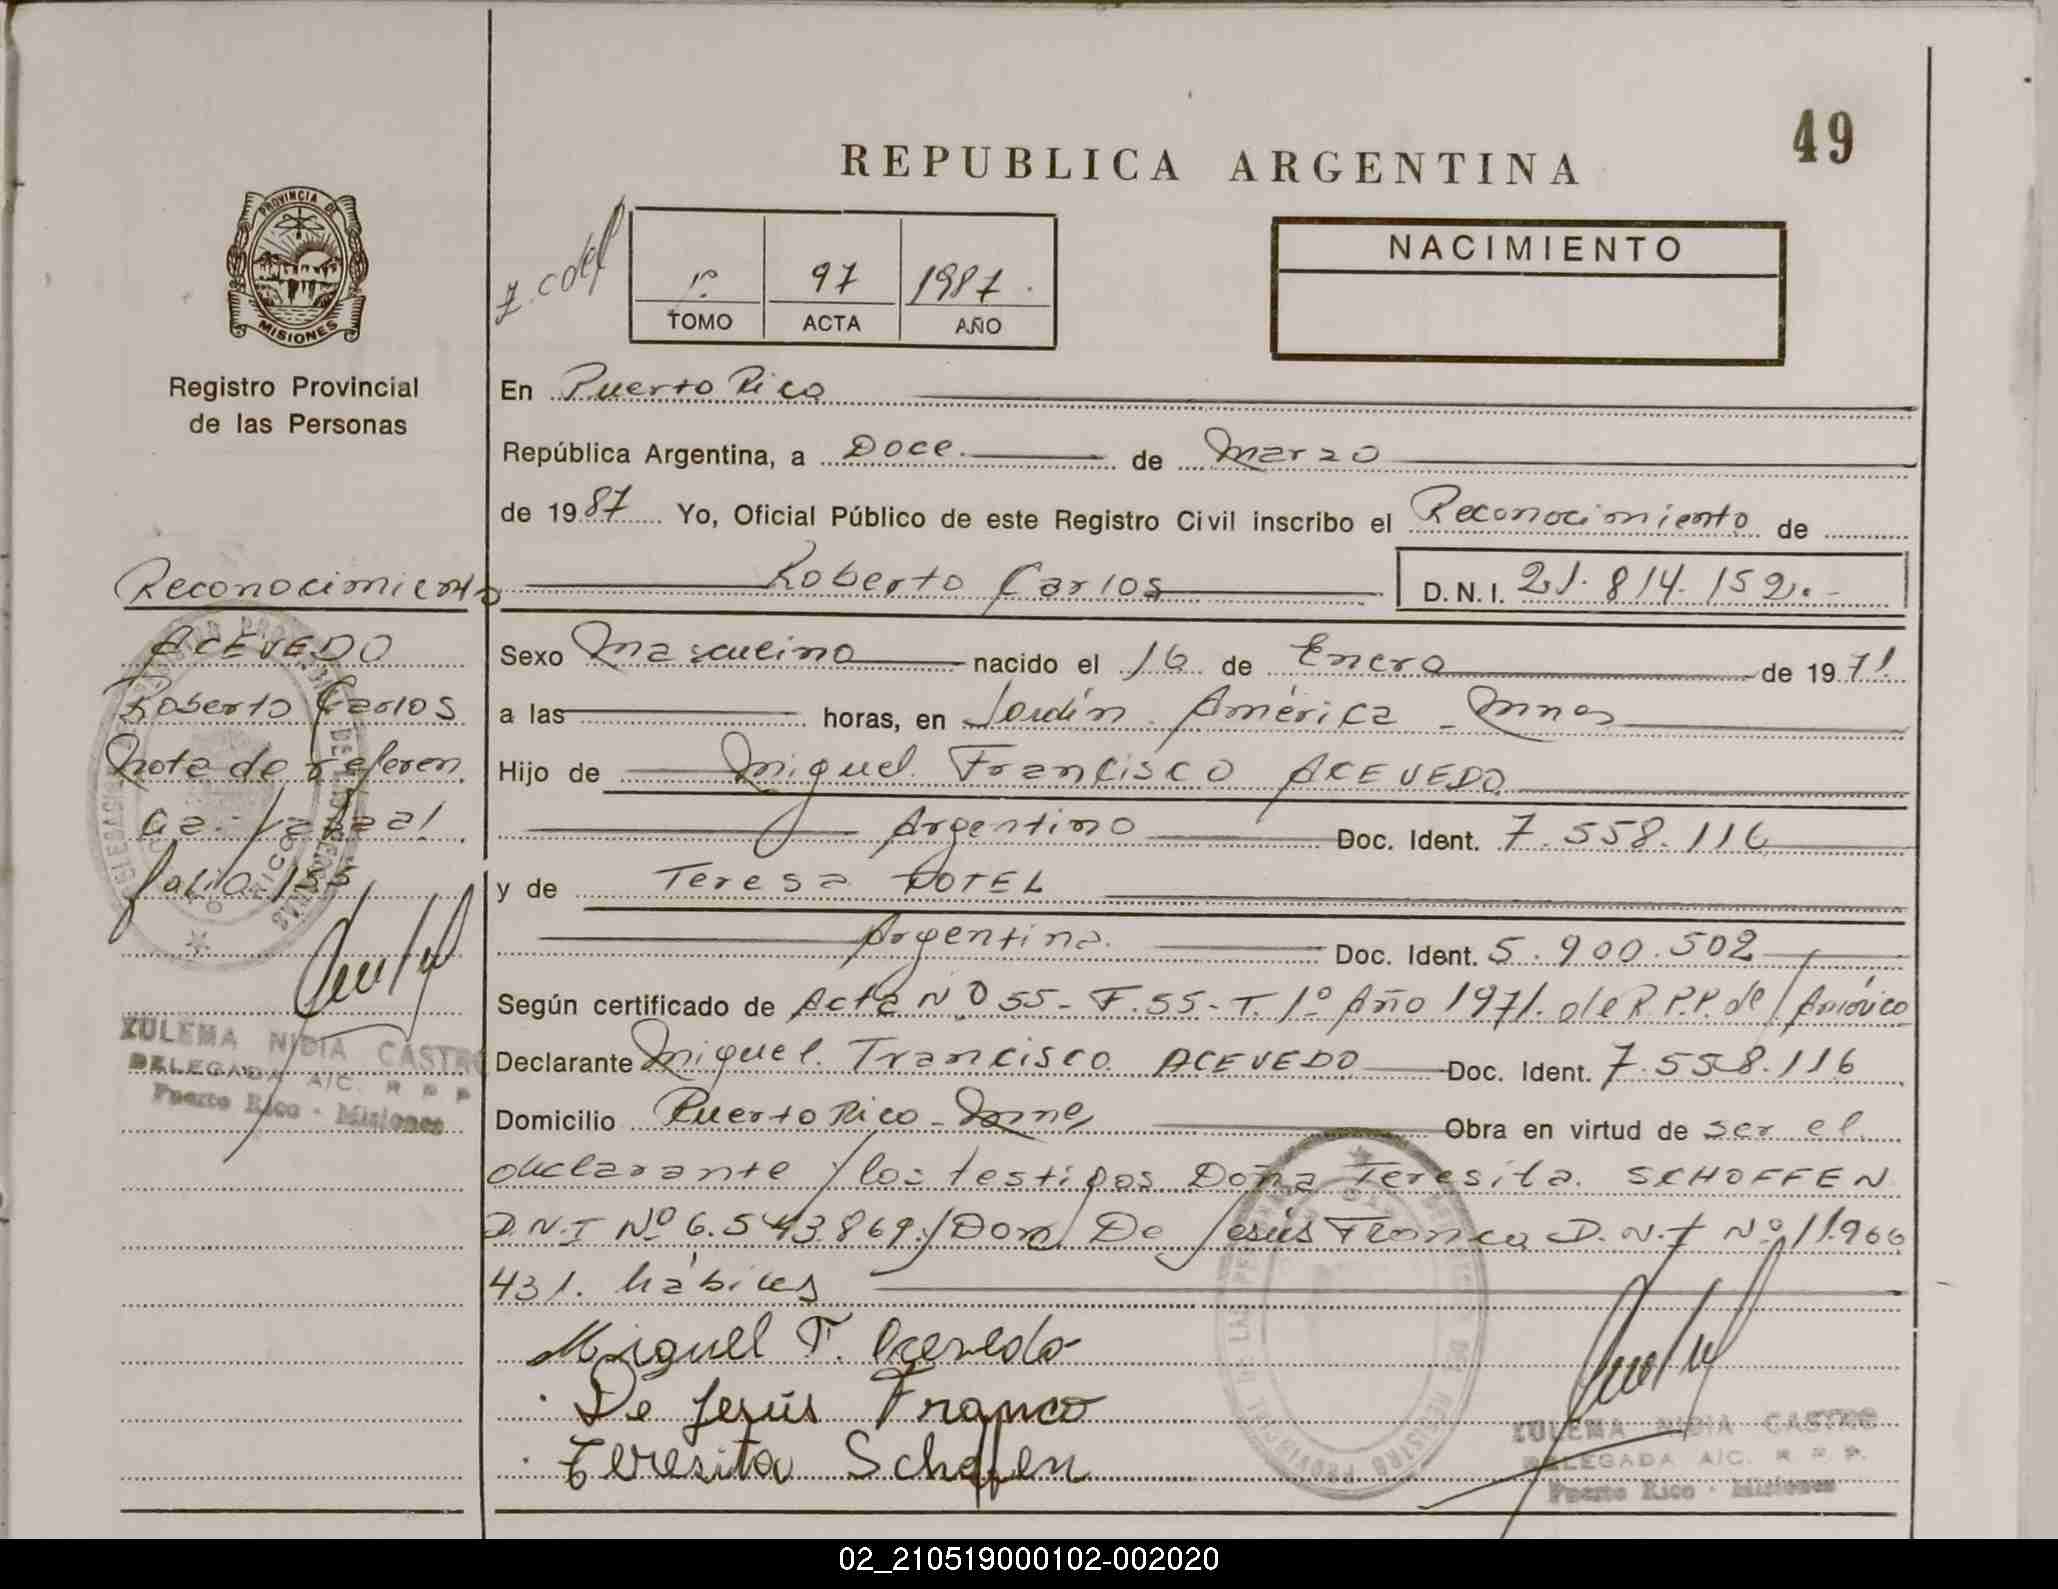 49
REPUBLICA ARGENTINA
PROVINCIA DE
MISIONES
Registro Provincial
de las Personas
1º 97 1987
TOMO ACTA AÑO
NACIMIENTO
En Puerto Rico
República Argentina, a Doce de Marzo
de 1987 Yo, Oficial Público de este Registro Civil inscribo el Reconocimiento de
Roberto Carlos D.N.I. 21.814.152.-
Sexo Masculino nacido el 16 de Enero de 1971
a las horas, en Jardín América - Mnes
Hijo de Miguel Francisco ACEVEDO
Argentino Doc. Ident. 7.558.116
y de Teresa
Argentina. Doc. Ident. 5.900.502
Según certificado de Acta Nº 55- F.55- T.1º Año 1971. de R.P.P. de J. América
Declarante Miguel Francisco ACEVEDO Doc. Ident. 7.558.116
Domicilio Puerto Rico - Obra en virtud de ser el
declarante y los testigos Doña Teresita SCHOFFEN
D.N.I Nº 6.543.869. y Don De Jesús Franco D.N.I Nº 11.966
431. hábiles
Miguel F. Acevedo
De Jesús Franco
Teresita Schoffen
Reconocimiento
ACEVEDO
Roberto Carlos
Nota de referen
cia
folio 155
ZULEMA NIDIA CASTRO
DELEGADA A/C. R P P
Puerto Rico - Misiones
ZULEMA NIDIA CASTRO
DELEGADA A/C. R P P.
Puerto Rico - Misiones
02_210519000102-002020